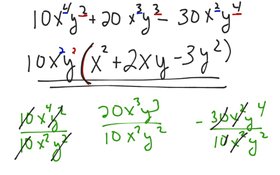 10x⁴y² + 20x³y³ − 30x²y⁴
10x²y² ( x² + 2xy − 3y² )
10x⁴y² / 10x²y²   20x³y³ / 10x²y²   − 30x²y⁴ / 10x²y²